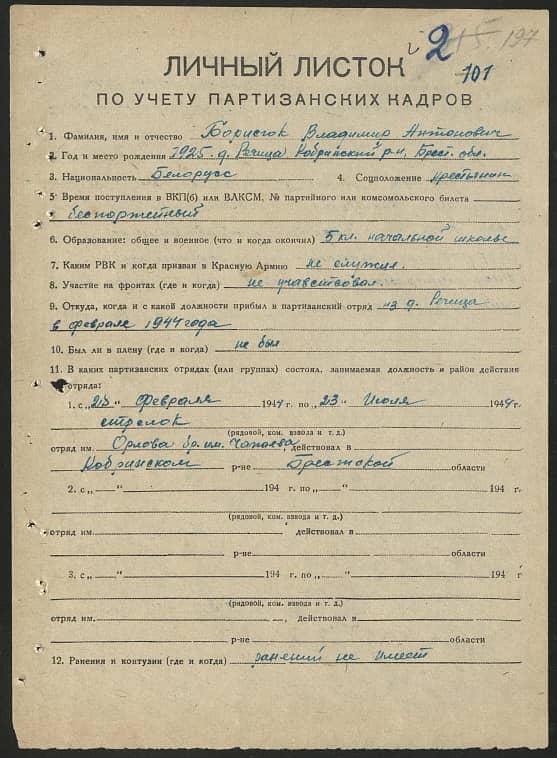 2 197
101
ЛИЧНЫЙ ЛИСТОК
ПО УЧЕТУ ПАРТИЗАНСКИХ КАДРОВ
1. Фамилия, имя и отчество Борисюк Владимир Антонович
2. Год и место рождения 1925 д. Речица Кобринский р-н, Брест. обл.
3. Национальность Белорусс 4. Соцположение крестьянин
5. Время поступления в ВКП(б) или ВЛКСМ, № партийного или комсомольского билета
беспартейный
6. Образование: общее и военное (что и когда окончил) 5 кл. начальной школы
7. Каким РВК и когда призван в Красную Армию не служил.
8. Участие на фронтах (где и когда) не учавствовал.
9. Откуда, когда и с какой должности прибыл в партизанский отряд из д. Речица
в феврале 1944 года
10. Был ли в плену (где и когда) не был
11. В каких партизанских отрядах (или группах) состоял, занимаемая должность и район действия
отряда:
1. с „ “ Февраля 1944 г. по „23“ Июля 1944 г.
стрелок
(рядовой, ком. взвода и т. д.)
отряд им. Орлова бр. им. Чапаева, действовал в
Кобринском р-не Брестской области
2. с „ “ 194 г. по „ “ 194 г.
(рядовой, ком. взвода и т. д.)
отряд им. действовал в
р-не области
3. с „ “ 194 г. по „ “ 194 г
(рядовой, ком. взвода и т. д.)
отряд им. , действовал в
р-не области
12. Ранения и контузии (где и когда) ранений не имеет